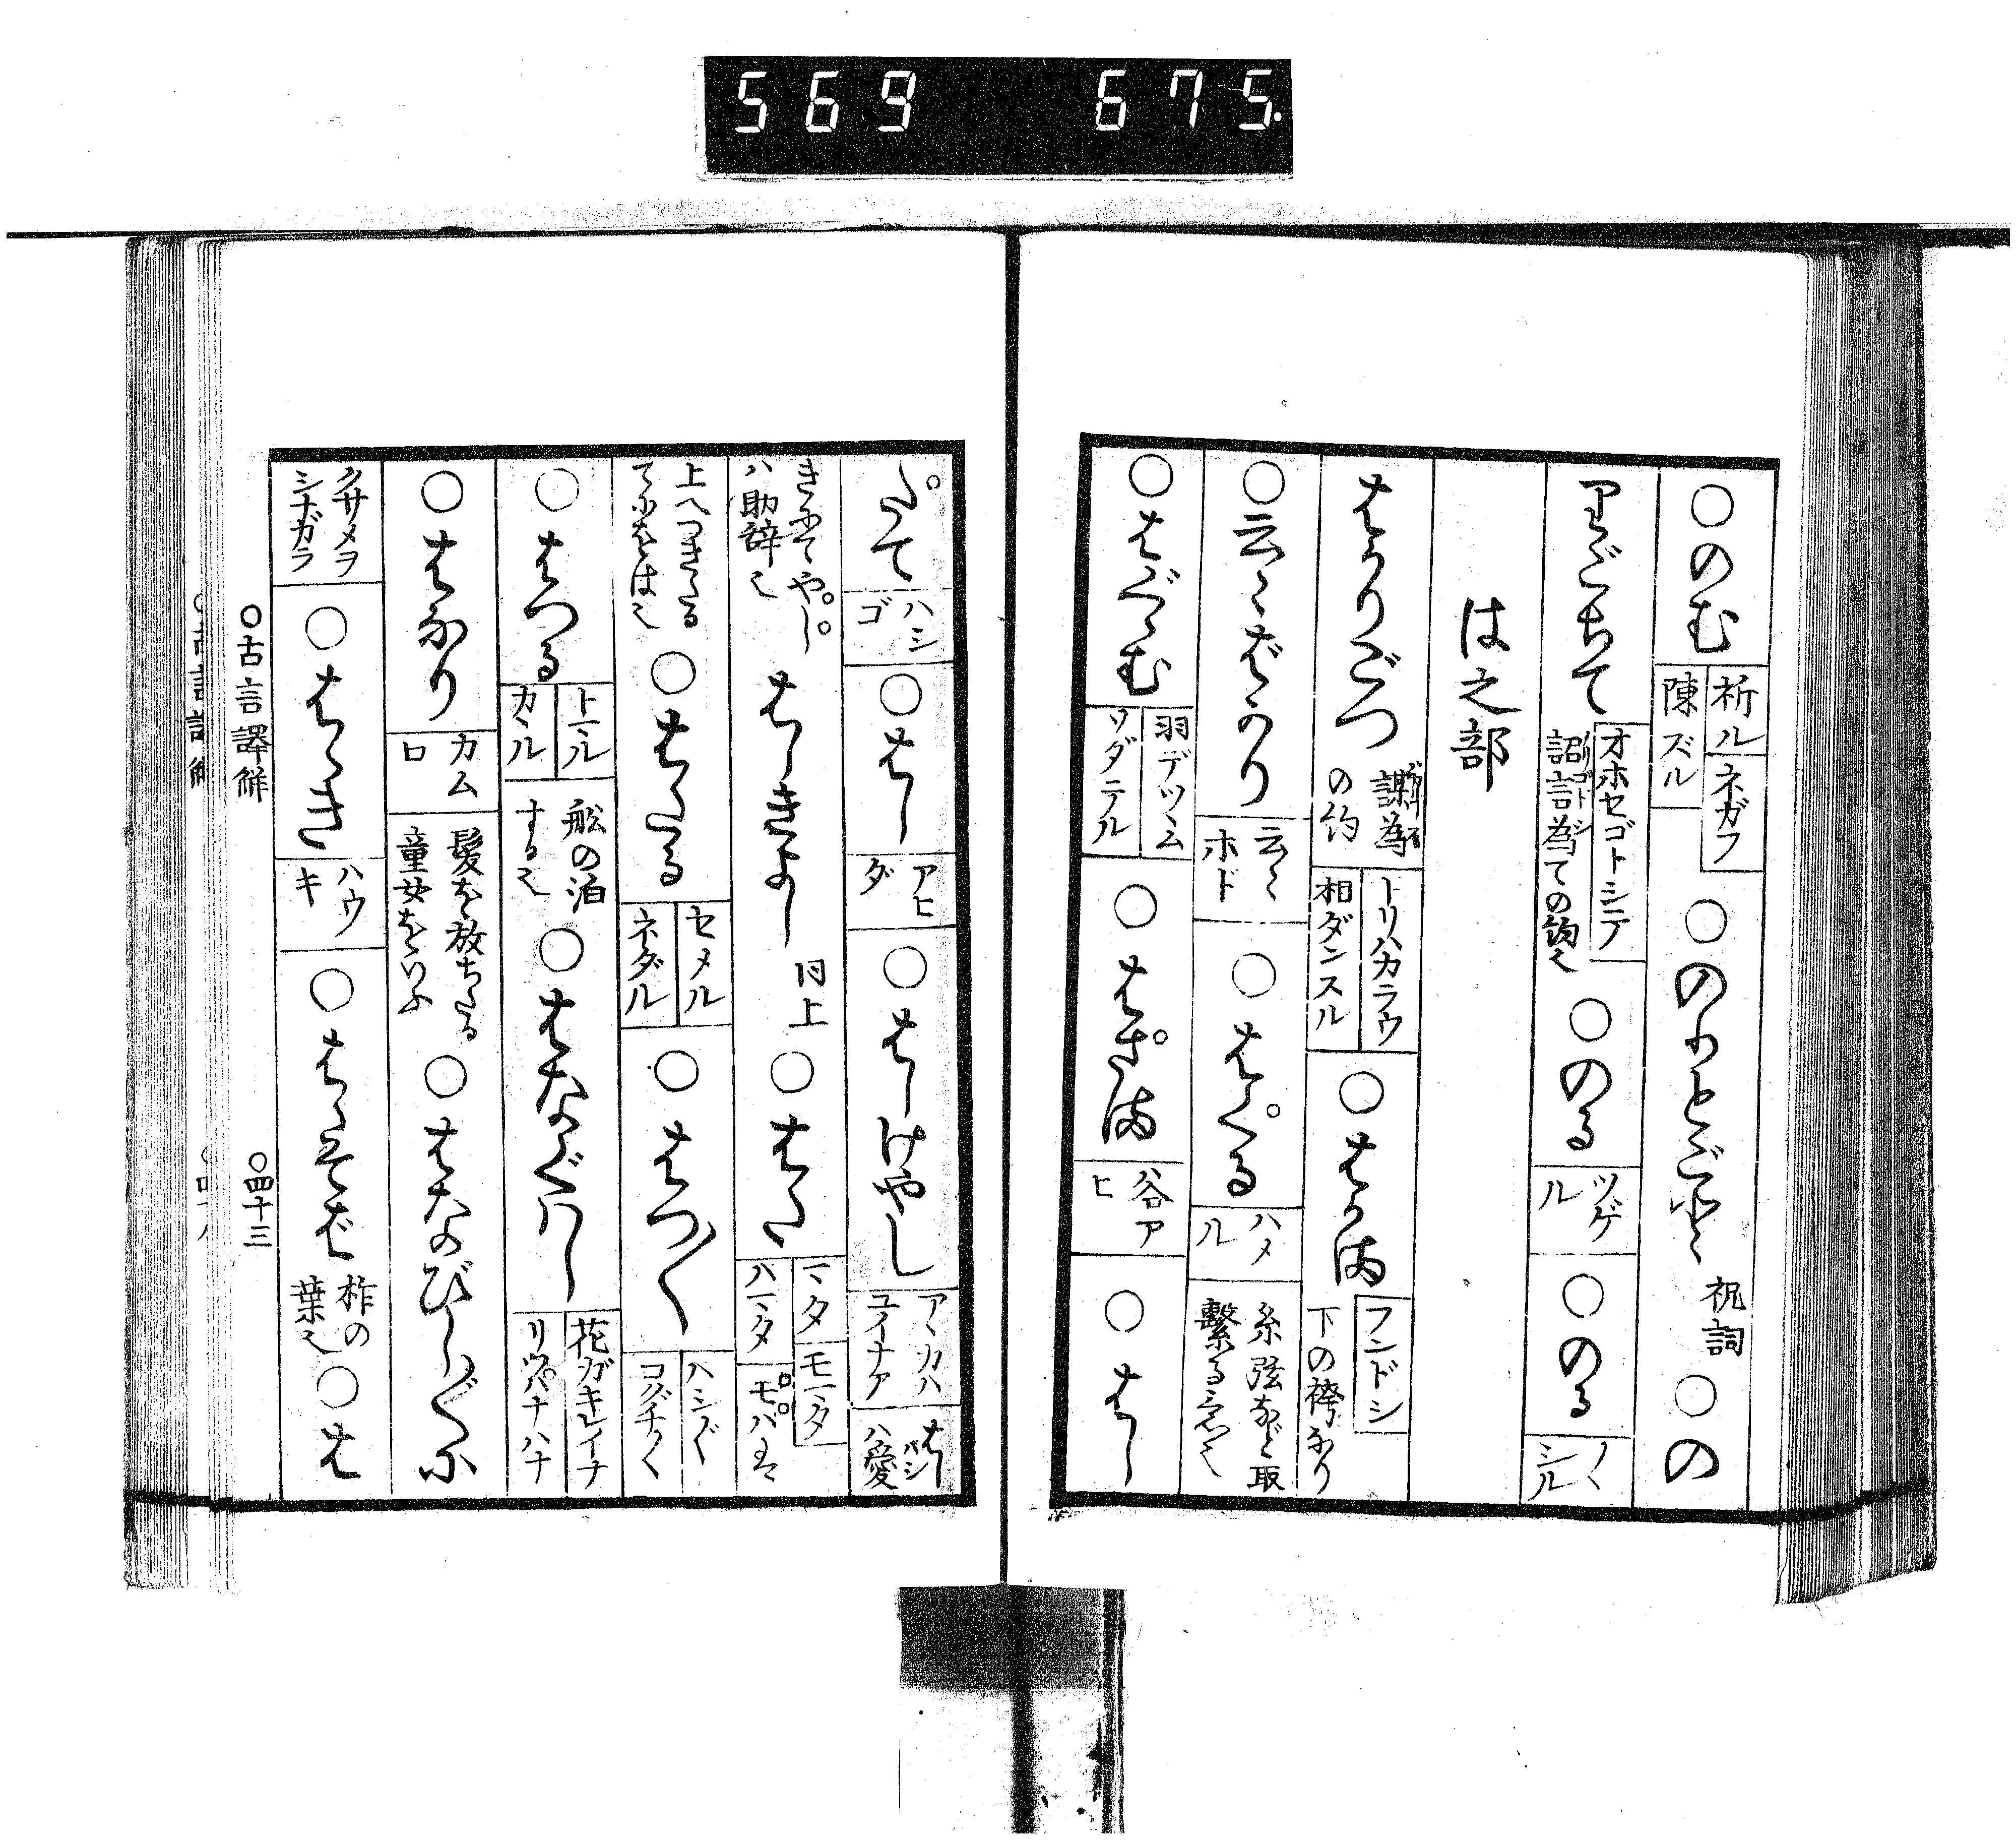 569 675
○のむ 祈ル ネガフ 陳ズル ○のりとごと 祝詞 ○の
りごちて オホセゴトシテ 詔言為ての約也 ○のる ツゲル ○のる ノヽシル
は之部
はかりごつ 謀為の約 トリハカラウ 相ダンスル ○はかま フンドシ 下の袴なり
○云々ばかり 云々ホド ○はくる ハメル 糸弦など取繋る
○はぐゝむ 羽デツヽム ソダテル ○はざま 谷アヒ ○はし
だて ハシゴ ○はし アヒダ ○はしけやし アヽカハユイナア はしハ愛
きにてやしハ助辞也 はしきよし 同上 ○はた マタ モマタ ハマタ
上へつきたるてにをは也 ○はたる セメル ネダル ○はつ〱
○はつる トマル カヽル 舩の泊する也 ○はなぐはし 花ガキレイナ リッパナハナ
○はなり カムロ 髪を放ちたる童女をいふ ○はなのびしつゝに
クサメヲシナガラ ○はゝき ハウキ ○はゝそば 柞の葉也 ○は
○古言譯解 ○四十三